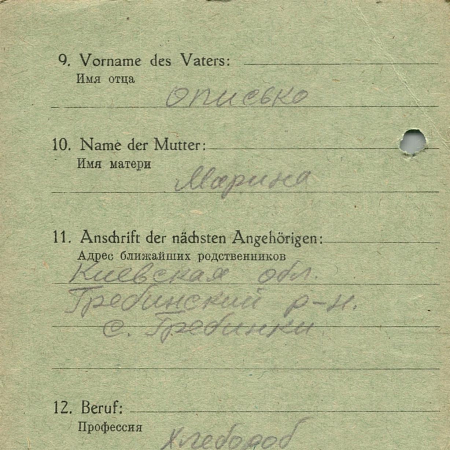 9. Vorname des Vaters:
Имя отца
Описько
10. Name der Mutter:
Имя матери
Марина
11. Anschrift der nächsten Angehörigen:
Адрес ближайших родственников
Киевская обл.
Гребинский р-н.
с. Гребинки
12. Beruf:
Профессия
Хлебодоб